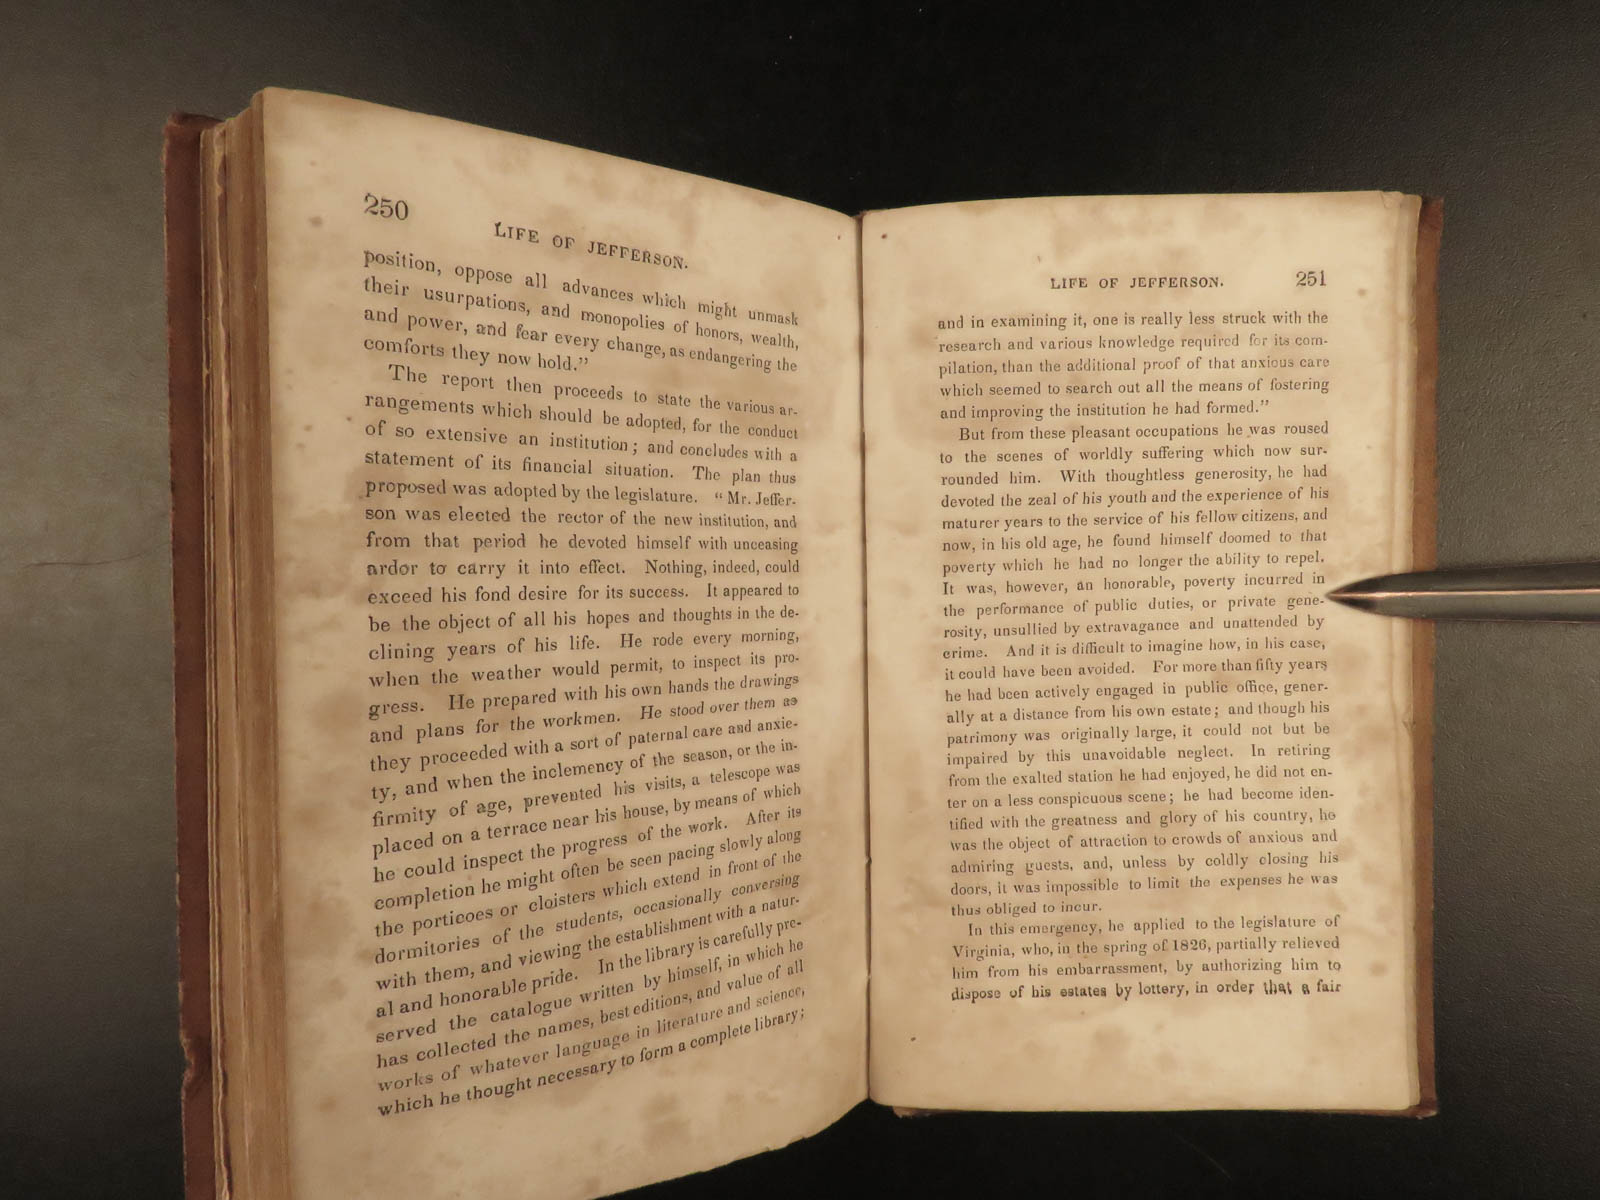 250
LIFE OF JEFFERSON.
position, oppose all advances which might unmask
their usurpations, and monopolies of honors, wealth,
and power, and fear every change, as endangering the
comforts they now hold.”
The report then proceeds to state the various ar-
rangements which should be adopted, for the conduct
of so extensive an institution; and concludes with a
statement of its financial situation. The plan thus
proposed was adopted by the legislature. “Mr. Jeffer-
son was elected the rector of the new institution, and
from that period he devoted himself with unceasing
ardor to carry it into effect. Nothing, indeed, could
exceed his fond desire for its success. It appeared to
be the object of all his hopes and thoughts in the de-
clining years of his life. He rode every morning,
when the weather would permit, to inspect its pro-
gress. He prepared with his own hands the drawings
and plans for the workmen. He stood over them as
they proceeded with a sort of paternal care and anxie-
ty, and when the inclemency of the season, or the in-
firmity of age, prevented his visits, a telescope was
placed on a terrace near his house, by means of which
he could inspect the progress of the work. After its
completion he might often be seen pacing slowly along
the porticoes or cloisters which extend in front of the
dormitories of the students, occasionally conversing
with them, and viewing the establishment with a natur-
al and honorable pride. In the library is carefully pre-
served the catalogue written by himself, in which he
has collected the names, best editions, and value of all
works of whatever language in literature and science,
which he thought necessary to form a complete library;
LIFE OF JEFFERSON. 251
and in examining it, one is really less struck with the
research and various knowledge required for its com-
pilation, than the additional proof of that anxious care
which seemed to search out all the means of fostering
and improving the institution he had formed.”
But from these pleasant occupations he was roused
to the scenes of worldly suffering which now sur-
rounded him. With thoughtless generosity, he had
devoted the zeal of his youth and the experience of his
maturer years to the service of his fellow citizens, and
now, in his old age, he found himself doomed to that
poverty which he had no longer the ability to repel.
It was, however, an honorable, poverty incurred in
the performance of public duties, or private gene-
rosity, unsullied by extravagance and unattended by
crime. And it is difficult to imagine how, in his case,
it could have been avoided. For more than fifty years
he had been actively engaged in public office, gener-
ally at a distance from his own estate; and though his
patrimony was originally large, it could not but be
impaired by this unavoidable neglect. In retiring
from the exalted station he had enjoyed, he did not en-
ter on a less conspicuous scene; he had become iden-
tified with the greatness and glory of his country, he
was the object of attraction to crowds of anxious and
admiring guests, and, unless by coldly closing his
doors, it was impossible to limit the expenses he was
thus obliged to incur.
In this emergency, he applied to the legislature of
Virginia, who, in the spring of 1826, partially relieved
him from his embarrassment, by authorizing him to
dispose of his estates by lottery, in order that a fair